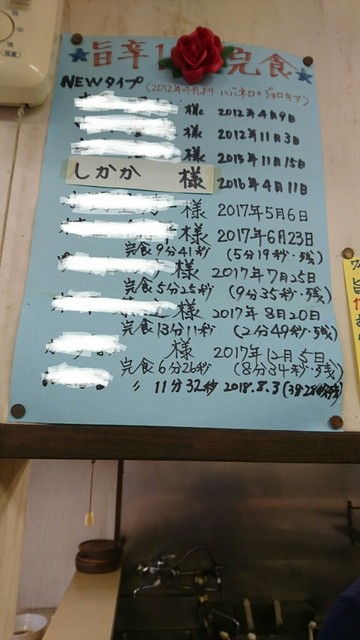 旨辛1 完食
NEWタイプ (2012年4月より ハバネロ+ジョロキア)
様 2012年4月9日
様 2012年11月3日
様 2013年11月15日
しかか 様 2016年4月11日
様 2017年5月6日
様 2017年6月23日
完食9分41秒 (5分19秒・残)
様 2017年7月25日
完食5分25秒 (9分35秒・残)
様 2017年8月20日
完食13分11秒 (2分49秒・残)
様 2017年12月5日
完食6分26秒 (8分34秒・残)
〃 11分32秒 2018.8.3 (3分28秒残)